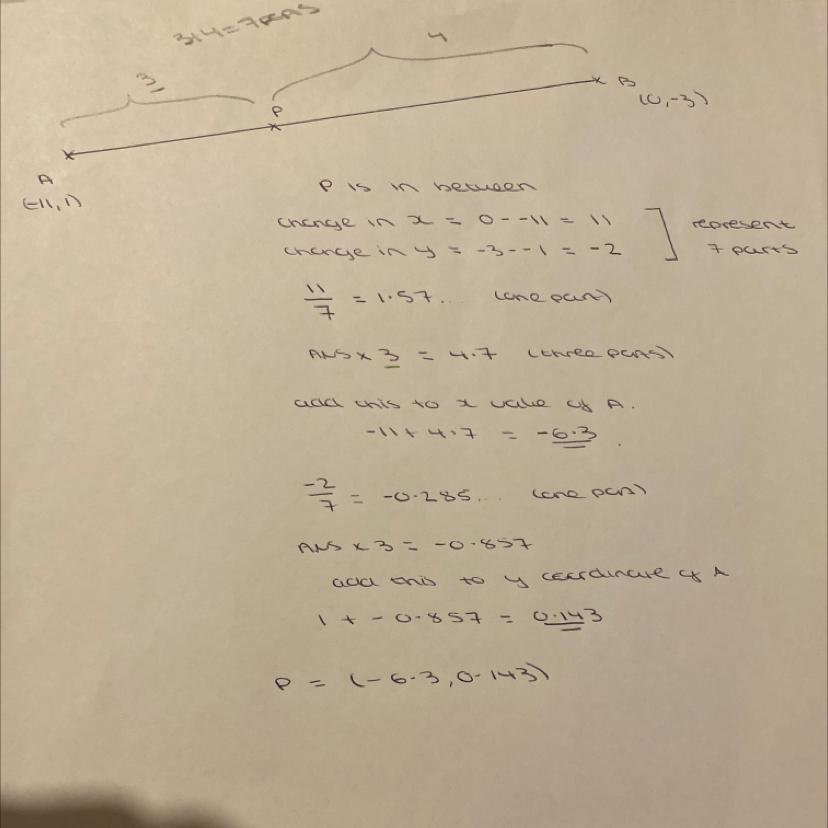 3+4=7parts
3
4
P
B
(0,-3)
A
(-11,1)
P is in between
change in x = 0--11 = 11
change in y = -3--1 = -2
represent
7 parts
11/7 = 1.57.. (one part)
Ans x 3 = 4.7 (three parts)
add this to x value of A.
-11+4.7 = -6.3.
-2/7 = -0.285... (one part)
Ans x 3 = -0.857
add this to y coordinate of A
1 + -0.857 = 0.143
P = (-6.3, 0.143)